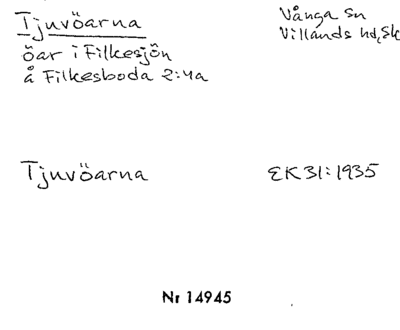 Tjuvöarna
öar i Filkesjön
å Filkesboda 2:4a
Vånga Sn
Villands hd, Sk
Tjuvöarna
EK31:1935
Nr 14945